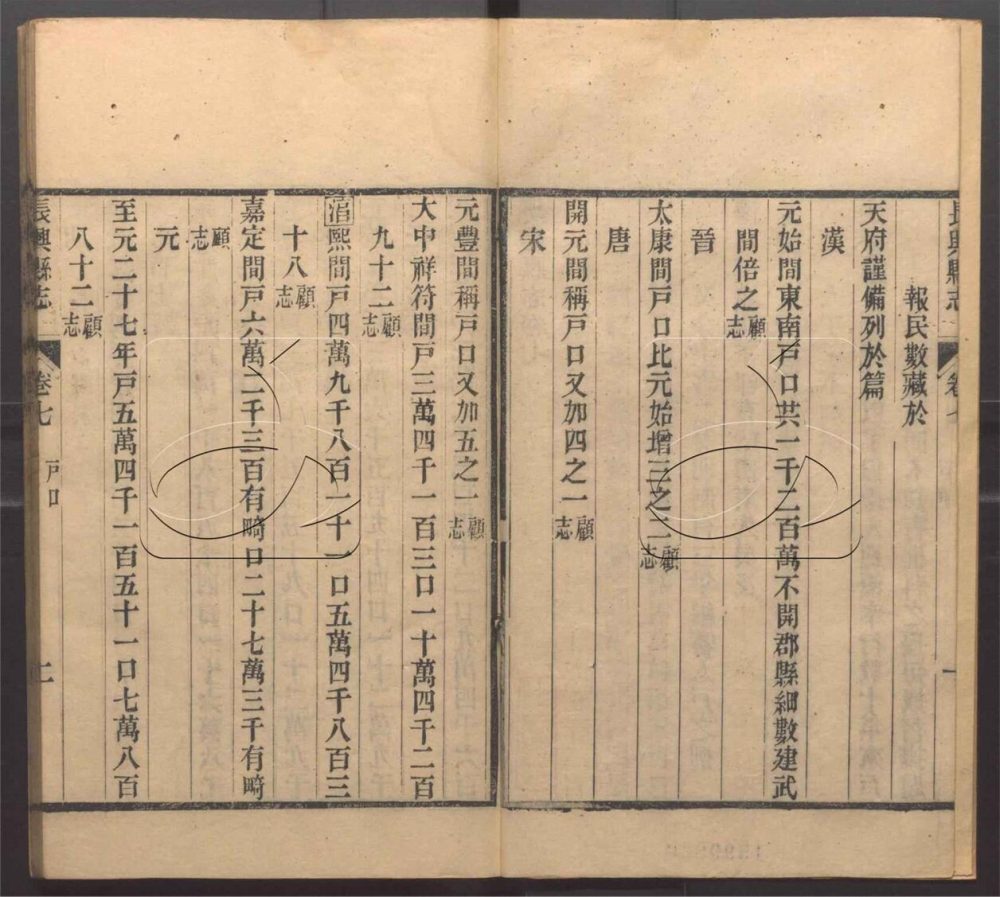 長興縣志
卷七
一
報民數藏於
天府謹備列於篇
漢
元始間東南戸口共一千二百萬不開郡縣細數建武
間倍之顧志
晉
太康間戸口比元始增三之二顧志
唐
開元間稱戸口又加四之一顧志
宋
元豐間稱戸口又加五之一顧志
大中祥符間戸三萬四千一百三口一十萬四千二百
九十二顧志
淯熙間戸四萬九千八百一十一口五萬四千八百三
十八顧志
嘉定間戸六萬二千三百有畸口二十七萬三千有畸
顧志
元
至元二十七年戸五萬四千一百五十一口七萬八百
八十二顧志
長興縣志
卷七
戸口